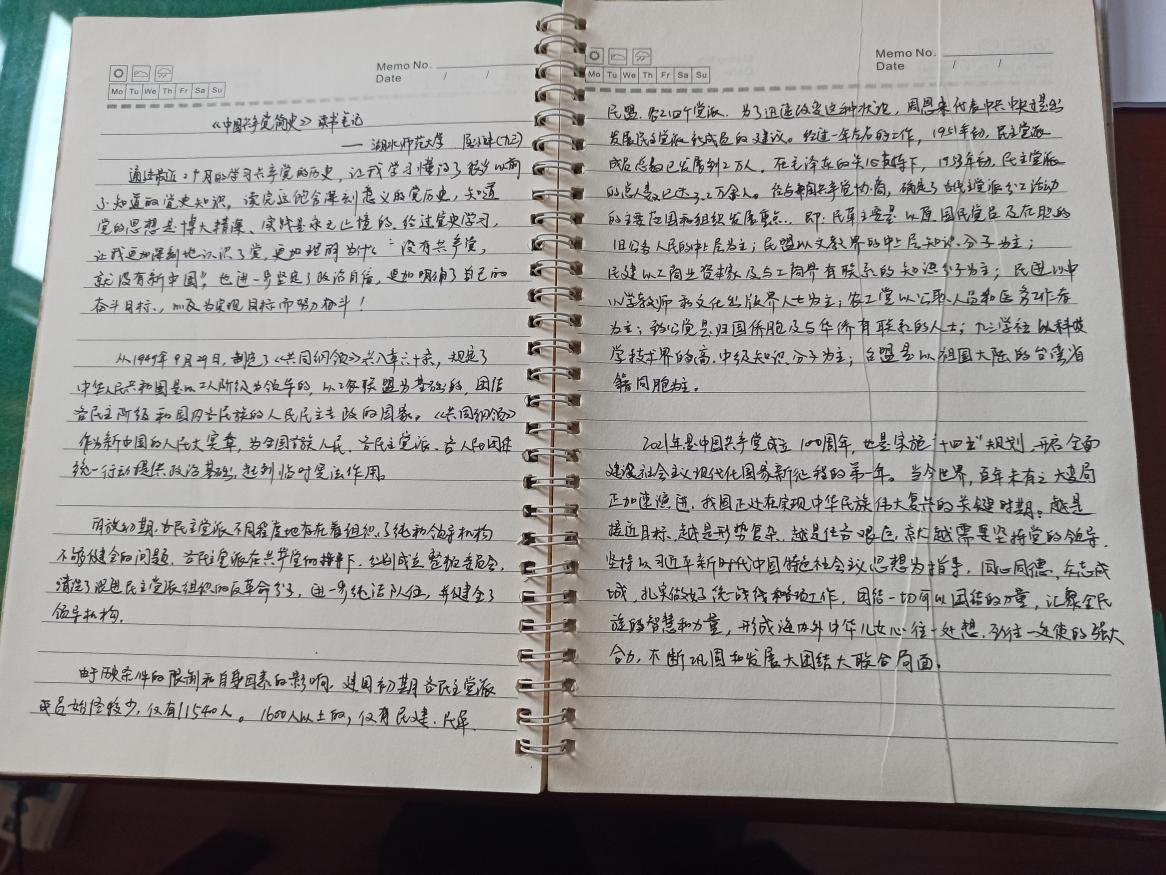 Memo No.
Date / /
Mo Tu We Th Fr Sa Su
《中国共产党简史》读书笔记
—— 湖北师范大学
通过最近2个月的学习共产党的历史，让我学习懂得了很多以前
不知道的党史知识。读完这饱含深刻意义的党历史，知道
党的思想是博大精深、实践是永无止境的。经过党史学习，
让我更加深刻地认识了党，更加理解为什么“没有共产党，
就没有新中国”。也进一步坚定了政治自信，更加明确了自己的
奋斗目标、以及为实现目标而努力奋斗！
从1949年9月29日，制定了《共同纲领》共八章六十条，规定了
中华人民共和国是以工人阶级为领导的，以工农联盟为基础的，团结
各民主阶级和国内各民族的人民民主专政的国家。《共同纲领》
作为新中国的人民大宪章，为全国各族人民、各民主党派、各人民团体
统一行动提供政治基础，起到临时宪法作用。
解放初期，各民主党派不同程度地存在着组织不纯和领导机构
不够健全的问题，各民主党派在共产党的指导下，分别成立整顿委员会，
清除了混进民主党派组织的反革命分子，进一步纯洁队伍，并健全了
领导机构。
由于历史条件的限制和自身因素的影响，建国初期各民主党派
成员始终较少，仅有11540人。1600人以上的，仅有民建、民革、
Memo No.
Date / /
Mo Tu We Th Fr Sa Su
民盟、农工四个党派。为了迅速改变这种状况，周恩来代表中共中央提出
发展民主党派新成员的建议。经过一年左右的工作，1951年初，民主党派
成员总数已发展到2万人。在毛泽东的关心支持下，1953年初，民主党派
的总人数已达3.2万余人。经与中国共产党协商，确定了各民主党派分工活动
的主要范围和组织发展重点，即：民革主要是以原国民党员及在职的
旧公务人员的中上层为主；民盟以文教界的中上层知识分子为主；
民建以工商业资本家及与工商界有联系的知识分子为主；民进以中
小学教师和文化出版界人士为主；农工党以公职人员和医务工作者
为主；致公党是归国侨胞及与华侨有联系的人士；九三学社以科技
学技术界的高、中级知识分子为主；台盟是以祖国大陆的台湾省
籍同胞为主。
2021年是中国共产党成立100周年，也是实施“十四五”规划、开启全面
建设社会主义现代化国家新征程的第一年。当今世界，百年未有之大变局
正加速演进，我国正处在实现中华民族伟大复兴的关键时期。越是
接近目标，越是形势复杂，越是任务艰巨，就越需要坚持党的领导，
坚持以习近平新时代中国特色社会主义思想为指导，同心同德，众志成
城，扎实做好统一战线和各项工作，团结一切可以团结的力量，汇聚全民
族的智慧和力量，形成海内外中华儿女心往一处想，劲往一处使的强大
合力，不断巩固和发展大团结大联合局面。